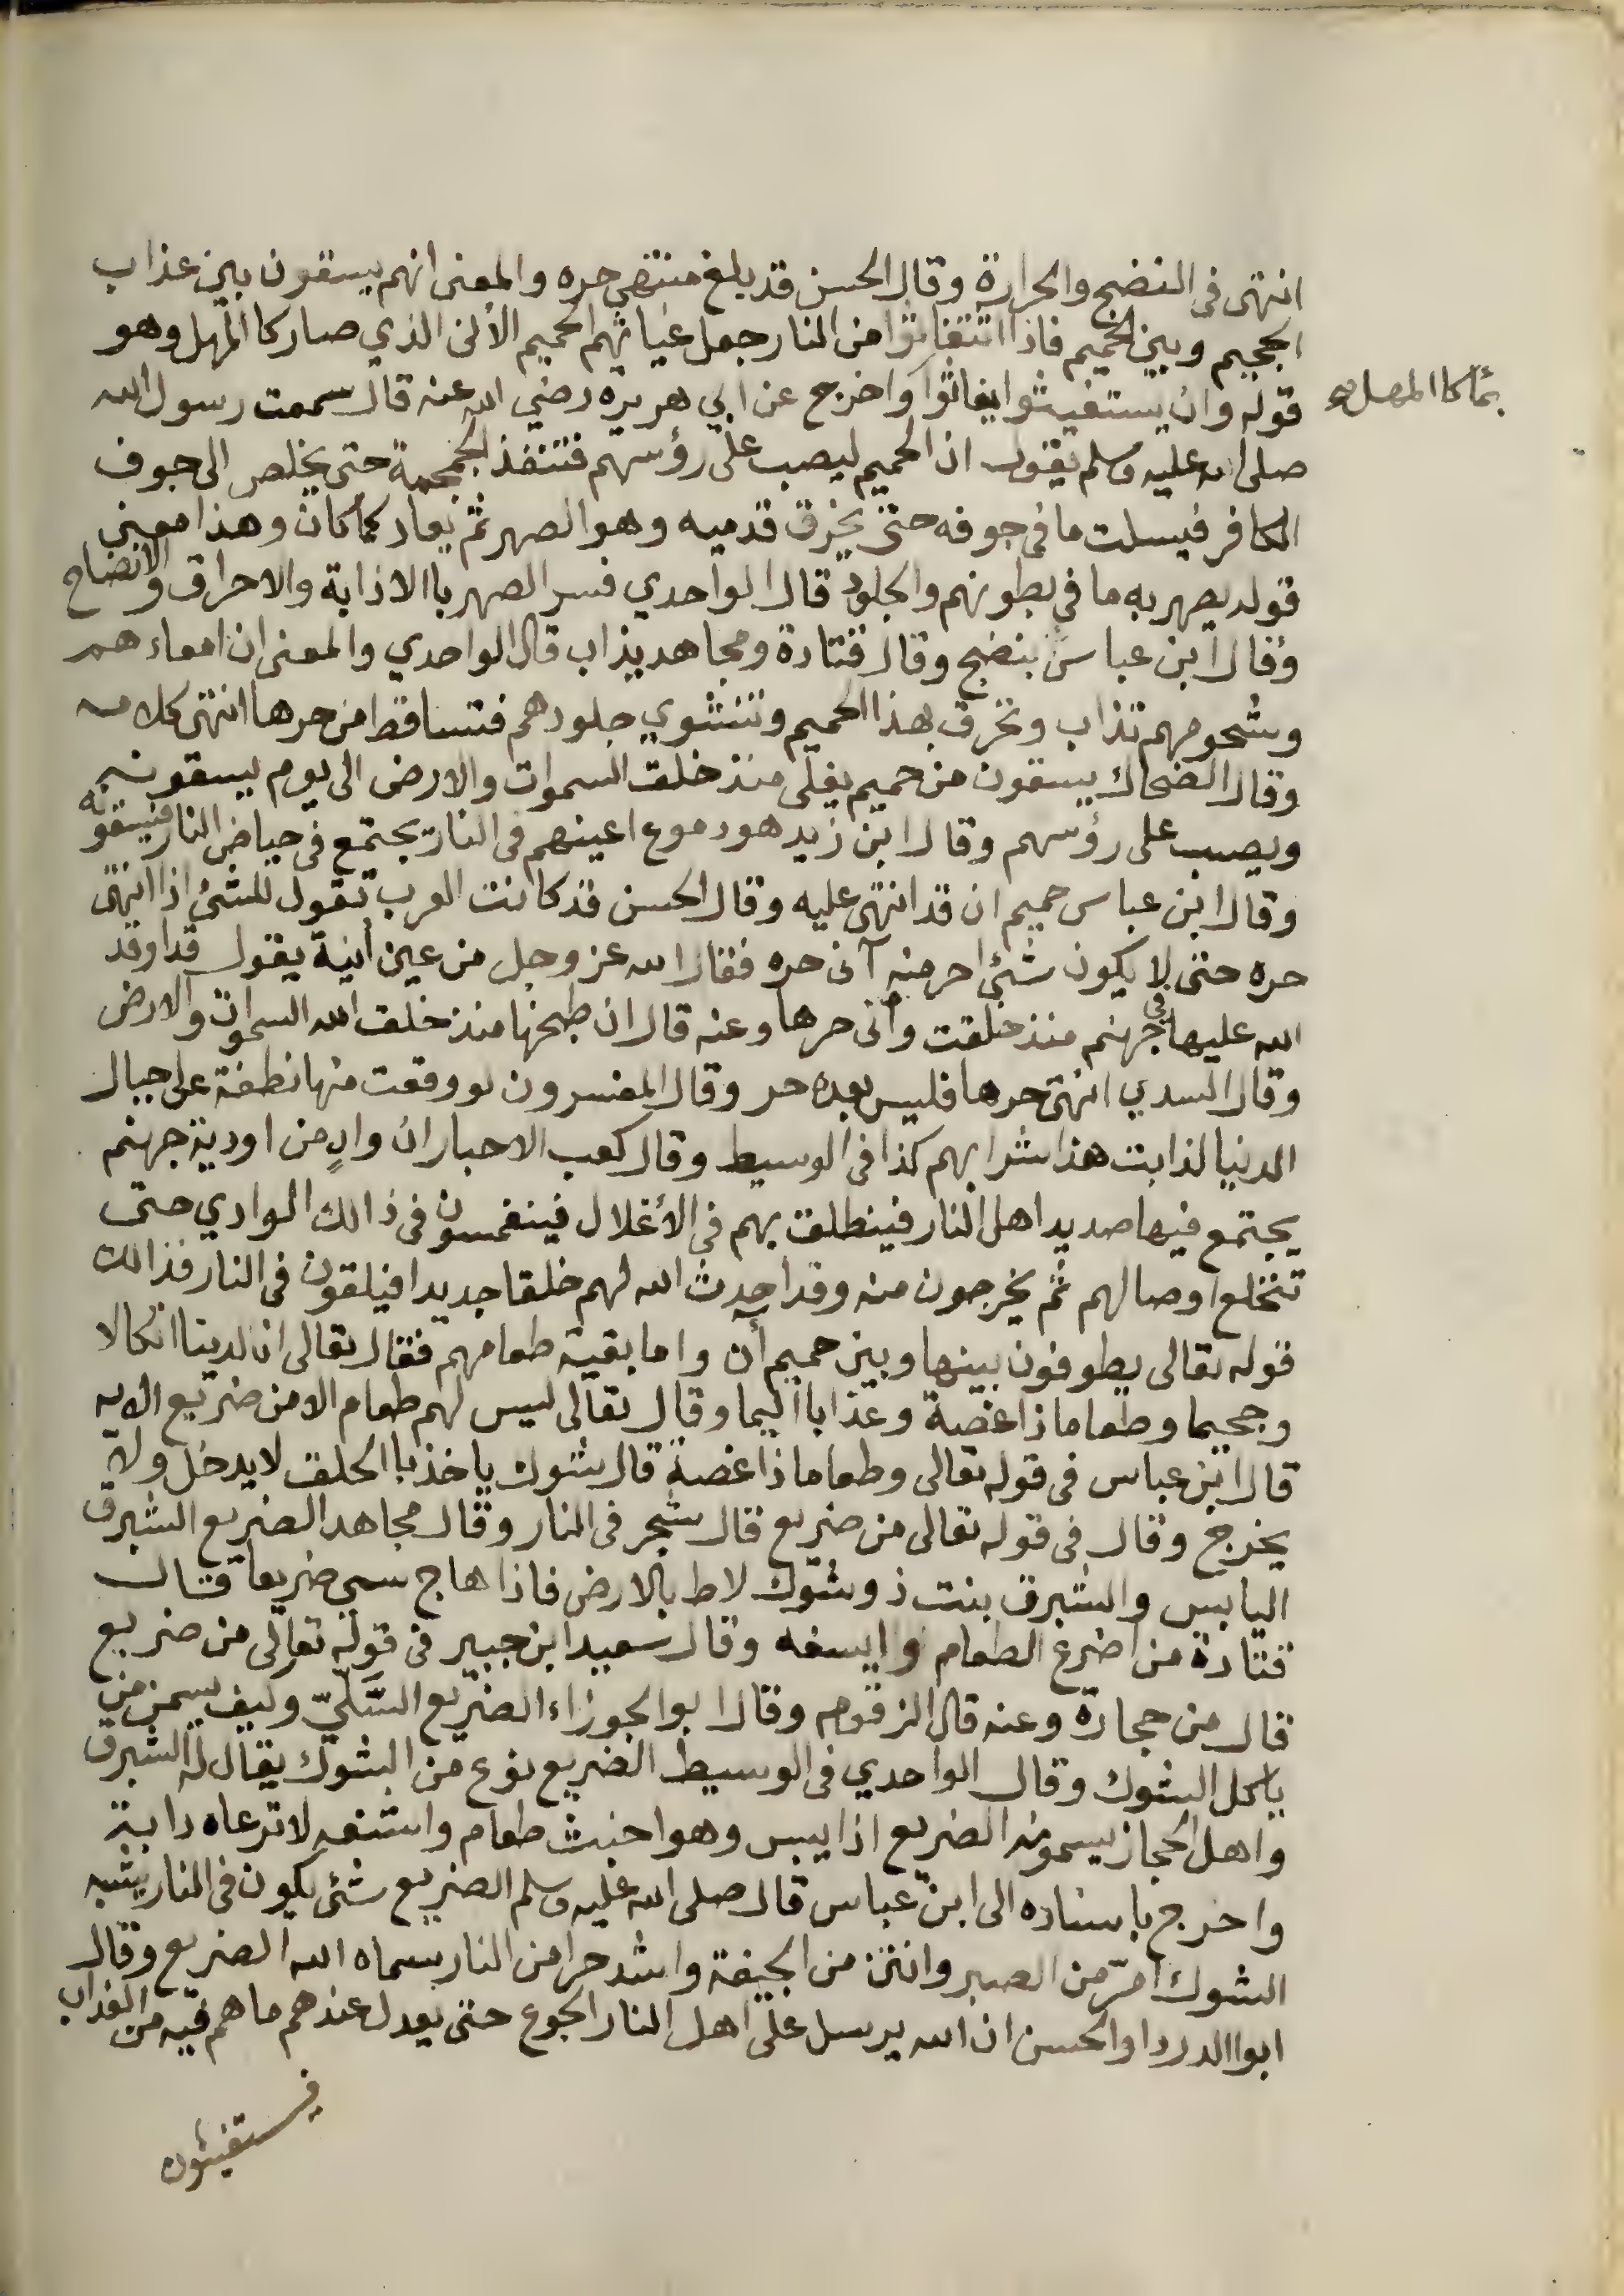 انتهى فى النضج والحرارة وقال الحسن قد بلغ منتهي حره والمعنى انهم يسقون بين عذاب
الجحيم وبين الحميم فاذا استغاثوا من النار جعل غياثهم الحميم الأنى الذي صار كا المهل وهو
قوله وان يستغيثوا يغاثوا واخرج عن ابي هريره رضي الله عنه قال سمعت رسول الله
بمآ كا المهل صح
صلى الله عليه وسلم يقول ان الحميم ليصب على رؤسهم فتنفذ الجمجمة حتى يخلص الى جوف
الكافر فيسلت ما فى جوفه حتى يخرق قدميه وهو الصهر ثم يعاد كما كان وهذا معنى
قوله يصهر به ما فى بطونهم والجلود قال الواحدي فسر الصهر باالاذابة والاحراق والانضاج
وقال ابن عباس ينضج وقال قتادة ومجاهد يذاب قال الواحدي والمعنى ان امعاء هم
وشحومهم تذاب وتخرق بهذا الحميم وتنشوي جلودهم فتتساقط من حرها انتهى كلامه
وقال الضحاك يسقون من حميم يغلى منذ خلق السموات والارض الى يوم يسقونه
ويصب على رؤسهم وقال ابن زيد هو دموع اعينهم فى النار يجتمع فى حياض النار فيسقونه
وقال ابن عباس حميم ان قد انتهى عليه وقال الحسن قد كانت العرب تقول للشئ اذا انتهى
حره حتى لا يكون شئ احر منه آنى حره فقال الله عز وجل من عين أنية يقول قد اوقد
الله عليها فى جهنم منذ خلقت وأنى حرها وعنه قال ان طبخها منذ خلق الله السموات والارض
وقال السدي انتهى حرها فليس بعده حر وقال المفسرون لو وقعت منها نطفة على جبال
الدنيا لذابت هذا شرابهم كذا فى الوسيط وقال كعب الاحبار ان وادٍ من اودية جهنم
يجتمع فيها صديد اهل النار فينطلق بهم فى الأغلال فينغمسون فى ذالك الوادي حتى
تنخلع اوصالهم ثم يخرجون منه وقد احدث الله لهم خلقا جديدا فيلقون فى النار فذالك
قوله تعالى يطوفون بينها وبين حميم أن واما بقية طعامهم فقال تعالى ان لدينا انكالا
وجحيما وطعاما ذا غصة وعذابا اليما وقال تعالى ليس لهم طعام الا من ضريع الايه
قال ابن عباس فى قوله تعالى وطعاما ذا غصة قال شوك ياخذ باالحلق لا يدخل ولا
يخرج وقال فى قوله تعالى من ضريع قال شجر فى النار وقال مجاهد الضريع الشبرق
اليابس والشبرق بنت ذو شوك لاط بالارض فاذا هاج سمى ضريعا قال
قتادة من اضرع الطعام وابسغه وقال سعيد ابن جبير فى قوله تعالى من ضريع
قال من حجارة وعنه قال الزقوم وقال ابو الجوزاء الضريع السَّليّ وكيف يسمن من
ياكل الشوك وقال الواحدي فى الوسيط الضريع نوع من الشوك يقال له الشبرق
واهل الحجاز يسمونه الضريع اذا يبس وهو اخبث طعام واشنعه لا ترعاه دابة
واخرج باسناده الى ابن عباس قال صلى الله عليه وسلم الضريع شئ يكون فى النار يشبه
الشوك امرّ من الصبر وانتن من الجيفة واشد حرا من النار سماه الله الضريع وقال
ابوا الدردا والحسن ان الله يرسل على اهل النار الجوع حتى يعدل عندهم ما هم فيه من العذاب
فيستغيثون